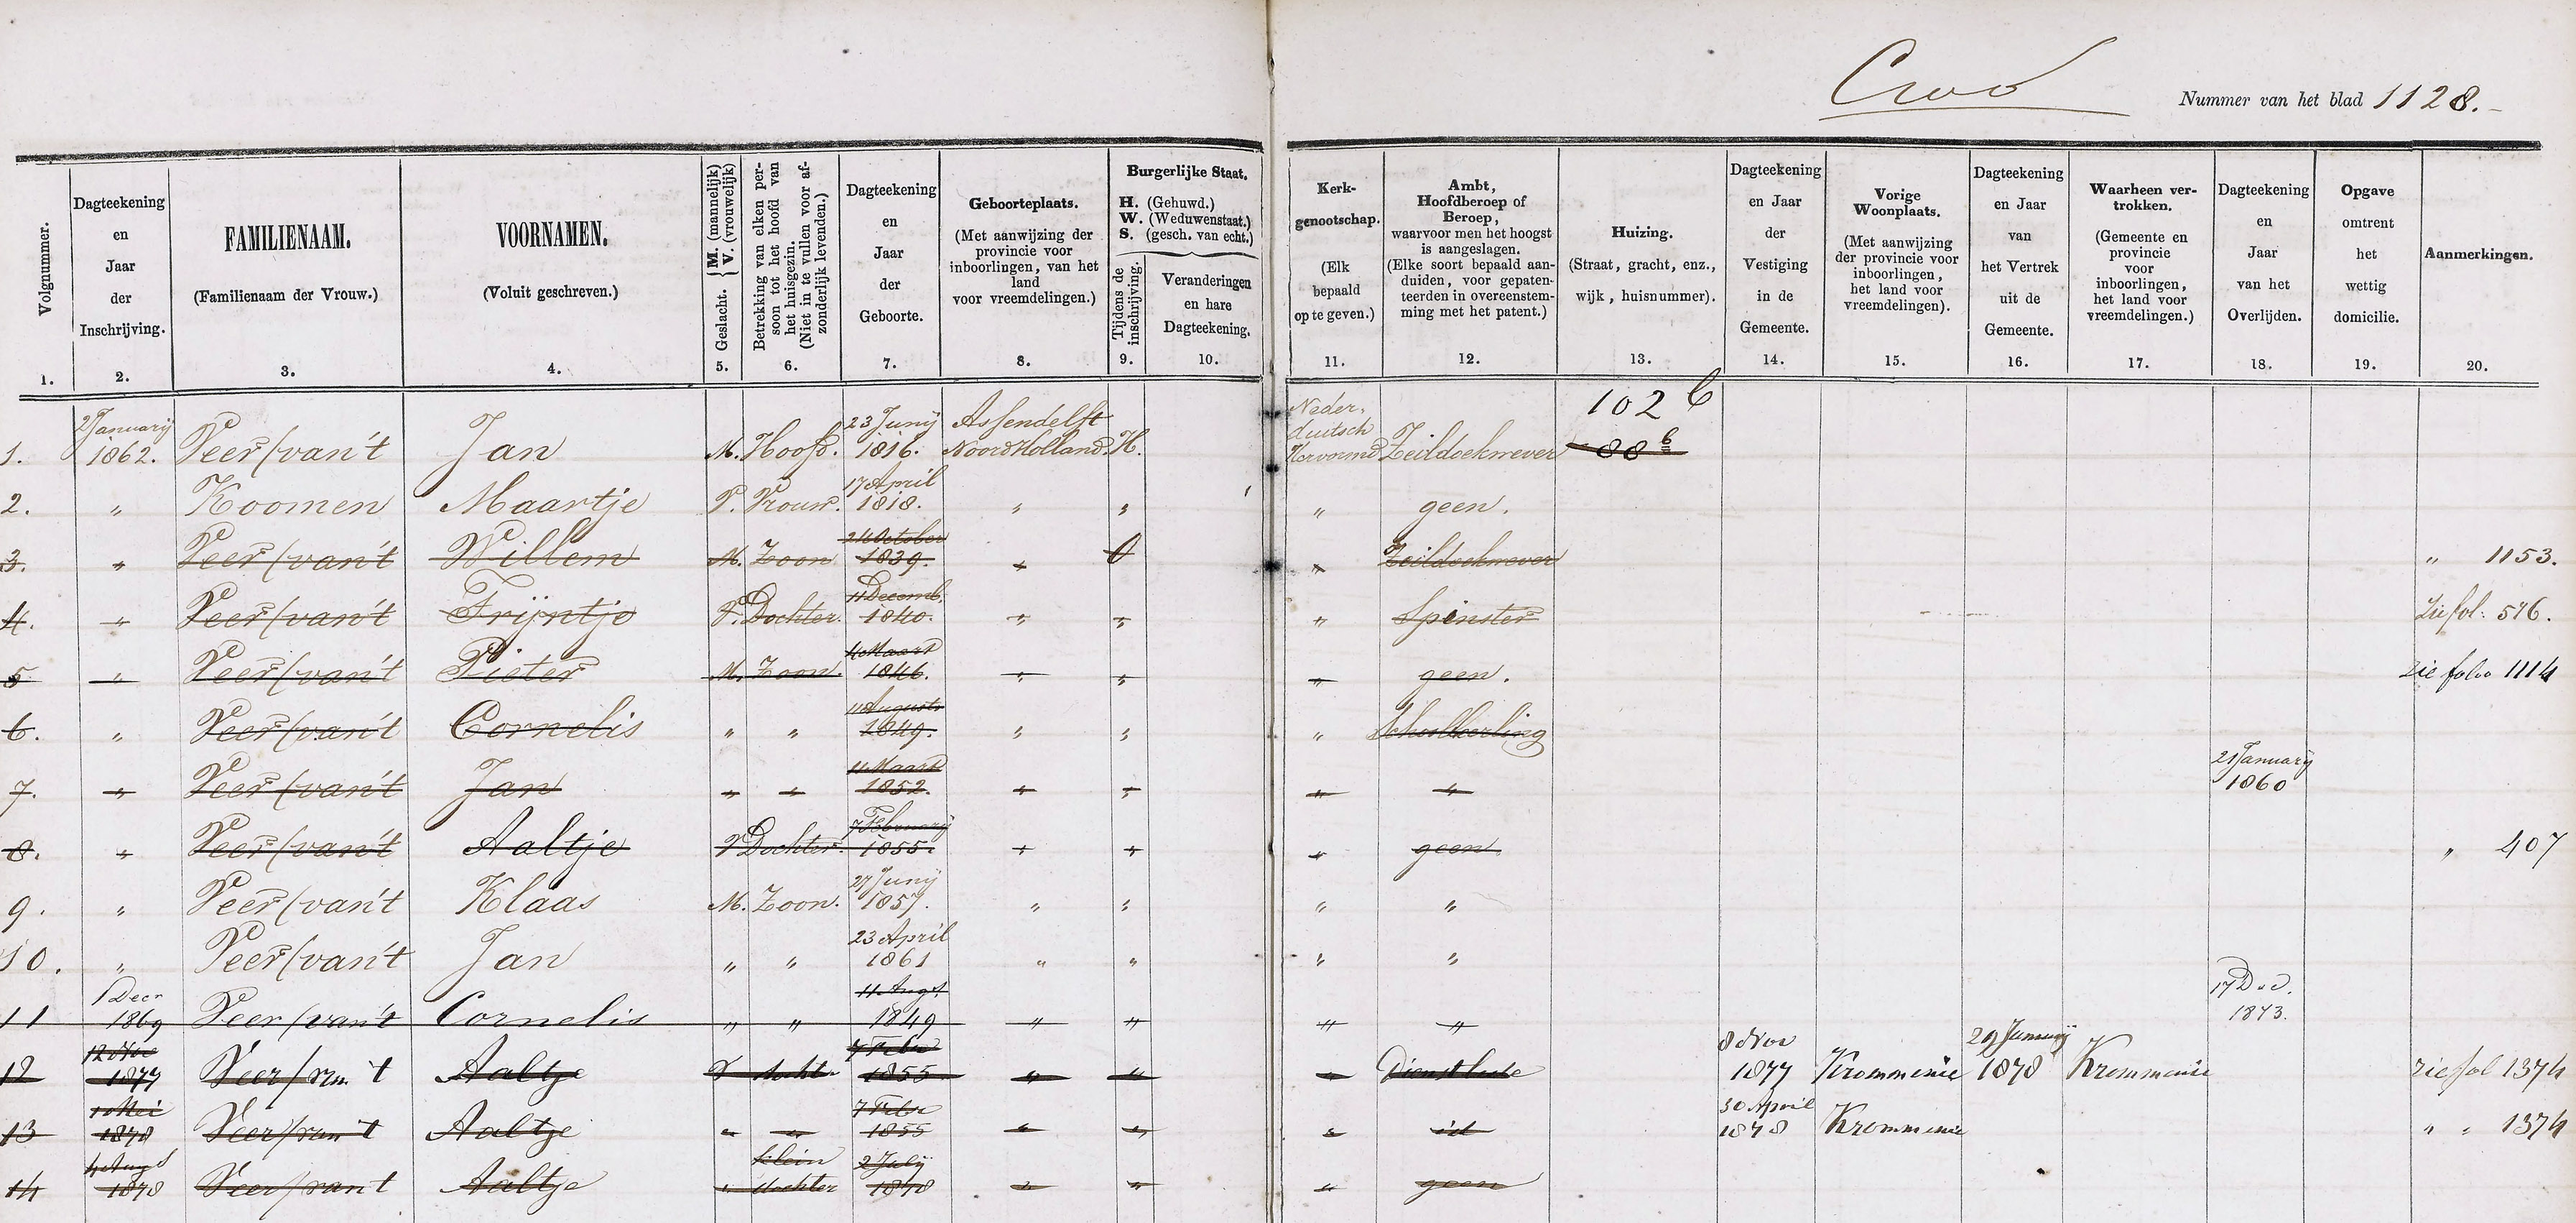 Croo
Nummer van het blad 1128.
Volgnummer.
1.
Dagteekening
en
Jaar
der
Inschrijving.
2.
FAMILIENAAM.
(Familienaam der Vrouw.)
3.
VOORNAMEN.
(Voluit geschreven.)
4.
Geslacht. { M. (mannelijk)
V. (vrouwelijk)
5.
Betrekking van elken per-
soon tot het hoofd van
het huisgezin.
(Niet in te vullen voor af-
zonderlijk levenden.)
6.
Dagteekening
en
Jaar
der
Geboorte.
7.
Geboorteplaats.
(Met aanwijzing der
provincie voor
inboorlingen, van het
land
voor vreemdelingen.)
8.
Burgerlijke Staat.
H. (Gehuwd.)
W. (Weduwenstaat.)
S. (gesch. van echt.)
Tijdens de
inschrijving.
9.
Veranderingen
en hare
Dagteekening.
10.
Kerk-
genootschap.
(Elk
bepaald
op te geven.)
11.
Ambt,
Hoofdberoep of
Beroep,
waarvoor men het hoogst
is aangeslagen.
(Elke soort bepaald aan-
duiden, voor gepaten-
teerden in overeenstem-
ming met het patent.)
12.
Huizing.
(Straat, gracht, enz.,
wijk, huisnummer).
13.
Dagteekening
en Jaar
der
Vestiging
in de
Gemeente.
14.
Vorige
Woonplaats.
(Met aanwijzing
der provincie voor
inboorlingen,
het land voor
vreemdelingen).
15.
Dagteekening
en Jaar
van
het Vertrek
uit de
Gemeente.
16.
Waarheen ver-
trokken.
(Gemeente en
provincie
voor
inboorlingen,
het land voor
vreemdelingen.)
17.
Dagteekening
en
Jaar
van het
Overlijden.
18.
Opgave
omtrent
het
wettig
domicilie.
19.
Aanmerkingen.
20.
1. 2 January 1862. Veer (van't Jan M. Hoofd. 23 Junij 1816. Assendelft Noord Holland. H. Neder. duitsch Hervormd Zeildoekwever 102 b 88 b
2. " Koomen Maartje V. Vrouw. 17 April 1818. " " " geen.
3. " Veer (van't Willem M. Zoon 24 October 1839. " " Zeildoekwever " 1153.
4. " Veer (van't Trijntje V. Dochter. 11 Decemb. 1840. " " " Spinster Zie fol: 576.
5 " Veer (van't Pieter M. Zoon. 4 Maart 1846. " " " geen. Zie folio 1114
6. " Veer (van't Cornelis " " 11 Augusts 1849. " " " Schoolleerling
7. " Veer (van't Jan " " 11 Maart 1852. " " " " 21 January 1860
8. " Veer (van't Aaltje V Dochter. 7 February 1855. " " " geen " 407
9. " Veer (van't Klaas M. Zoon. 27 Junij 1857. " " " "
10. " Veer (van't Jan " " 23 April 1861 " " " "
11 1 Decr 1869 Veer (van't Cornelis " " 11 Augt. 1849 " " " " 17 Dec. 1873.
12 12 Nov 1877 Veer / van 't Aaltje V docht 7 Febr 1855 " " " Dienstbode 8 Nov 1877 Krommenie 29 January 1878 Krommenie zie fol 1374
13 10 Mei 1878 Veer / van 't Aaltje " " 7 Febr 1855 " " " id 30 April 1878 Krommenie " " 1374
14 4 Augt 1878 Veer / van t Aaltje " klein dochter 2 July 1878 " " " geen